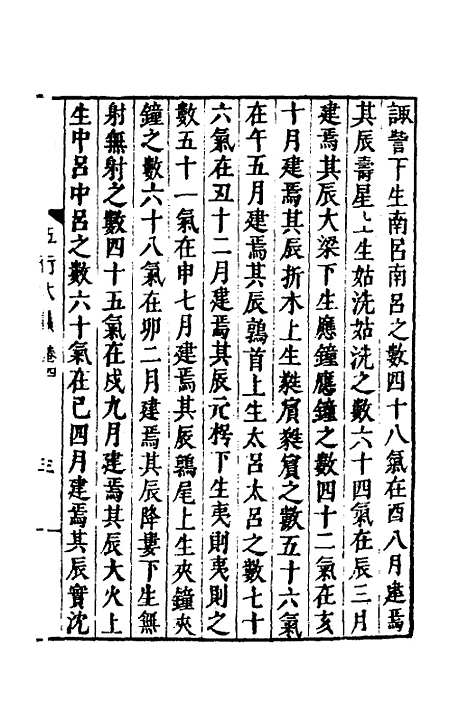 諏訾下生南呂南呂之數四十八氣在酉八月建焉
其辰壽星上生姑洗姑洗之數六十四氣在辰三月
建焉其辰大梁下生應鐘應鐘之數四十二氣在亥
十月建焉其辰折木上生蕤賓蕤賓之數五十六氣
在午五月建焉其辰鶉首上生太呂太呂之數七十
六氣在丑十二月建焉其辰元楞下生夷則夷則之
數五十一氣在申七月建焉其辰鶉尾上生夾鐘夾
鐘之數六十八氣在卯二月建焉其辰降婁下生無
射無射之數四十五氣在戌九月建焉其辰大火上
生中呂中呂之數六十氣在巳四月建焉其辰實沈
五行大義 卷四 三